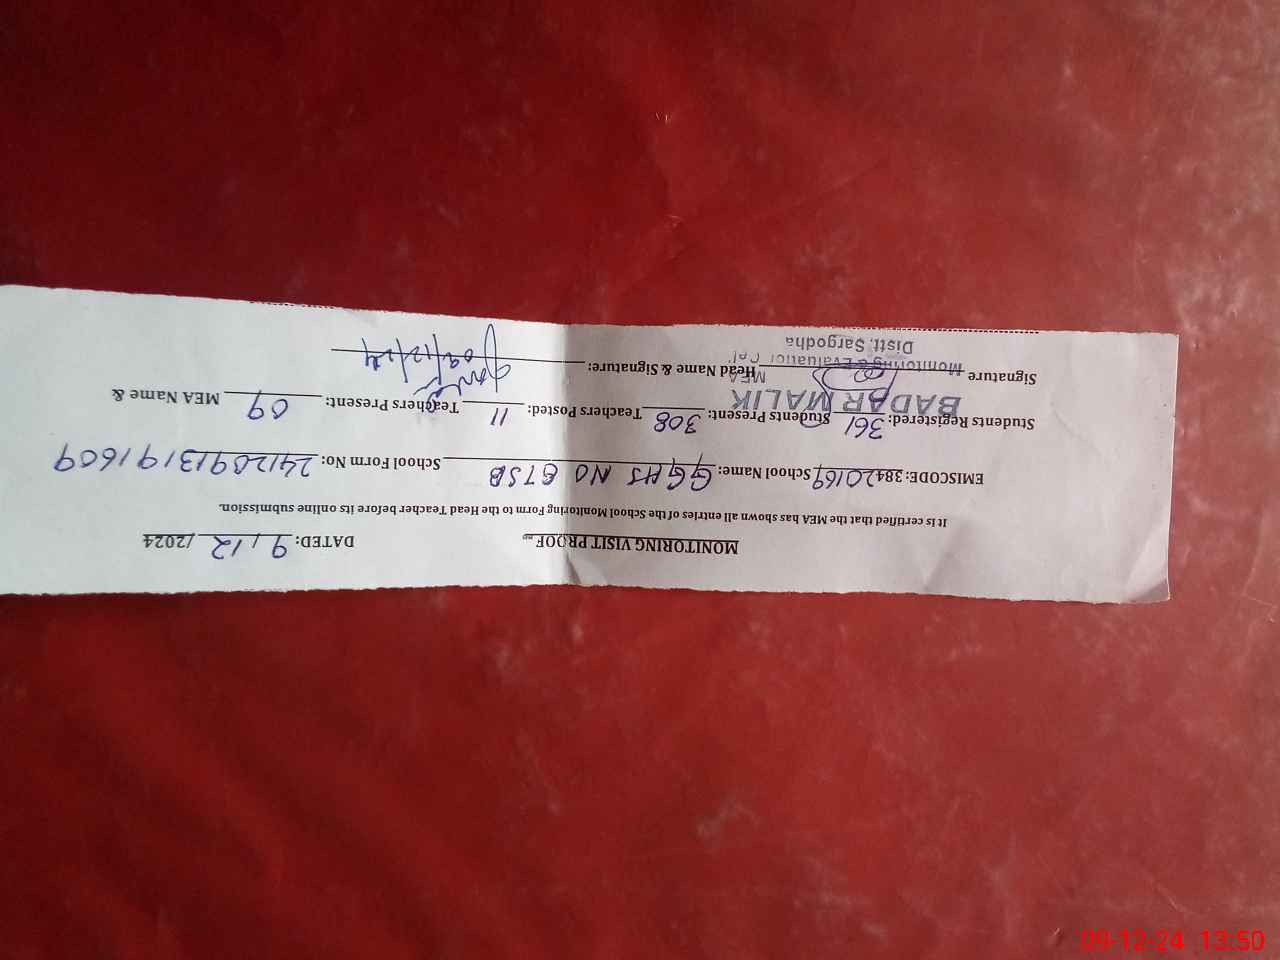 MONITORING VISIT PROOF DATED: 9/12/2024
It is certified that the MEA has shown all entries of the School Monitoring Form to the Head Teacher before its online submission.
EMISCODE: 38420169 School Name: GGHS NO 87SB School Form No: 2412091319 1609
Students Registered: 361 Students Present: 308 Teachers Posted: 11 Teachers Present: 09 MEA Name &
Signature Head Name & Signature: 09/12/24
BADAR MALIK
MEA
Monitoring & Evaluation Cell
Distt. Sargodha
09-12-24 13:50